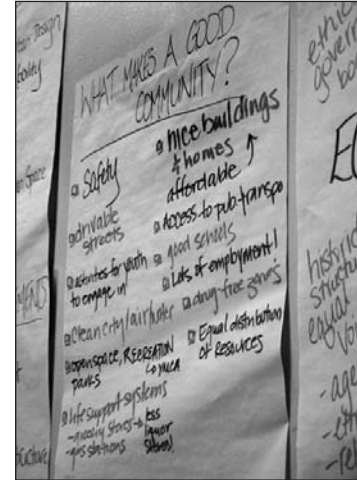 WHAT MAKES A GOOD
COMMUNITY?
Safety
drivable
streets
activities for youth
to engage in
Clean city/air/water
open space, RECREATION
parks ↳ YMCA
life support systems
- grocery stores → less
- gas stations (liquor
stores)
nice buildings
& homes ↑
affordable
Access to pub. transpo
good schools
Lots of employment!
drug-free zones
Equal distribution
of RESOURCES
Design
Space
ethic
govern
historic
structu
equal
- age